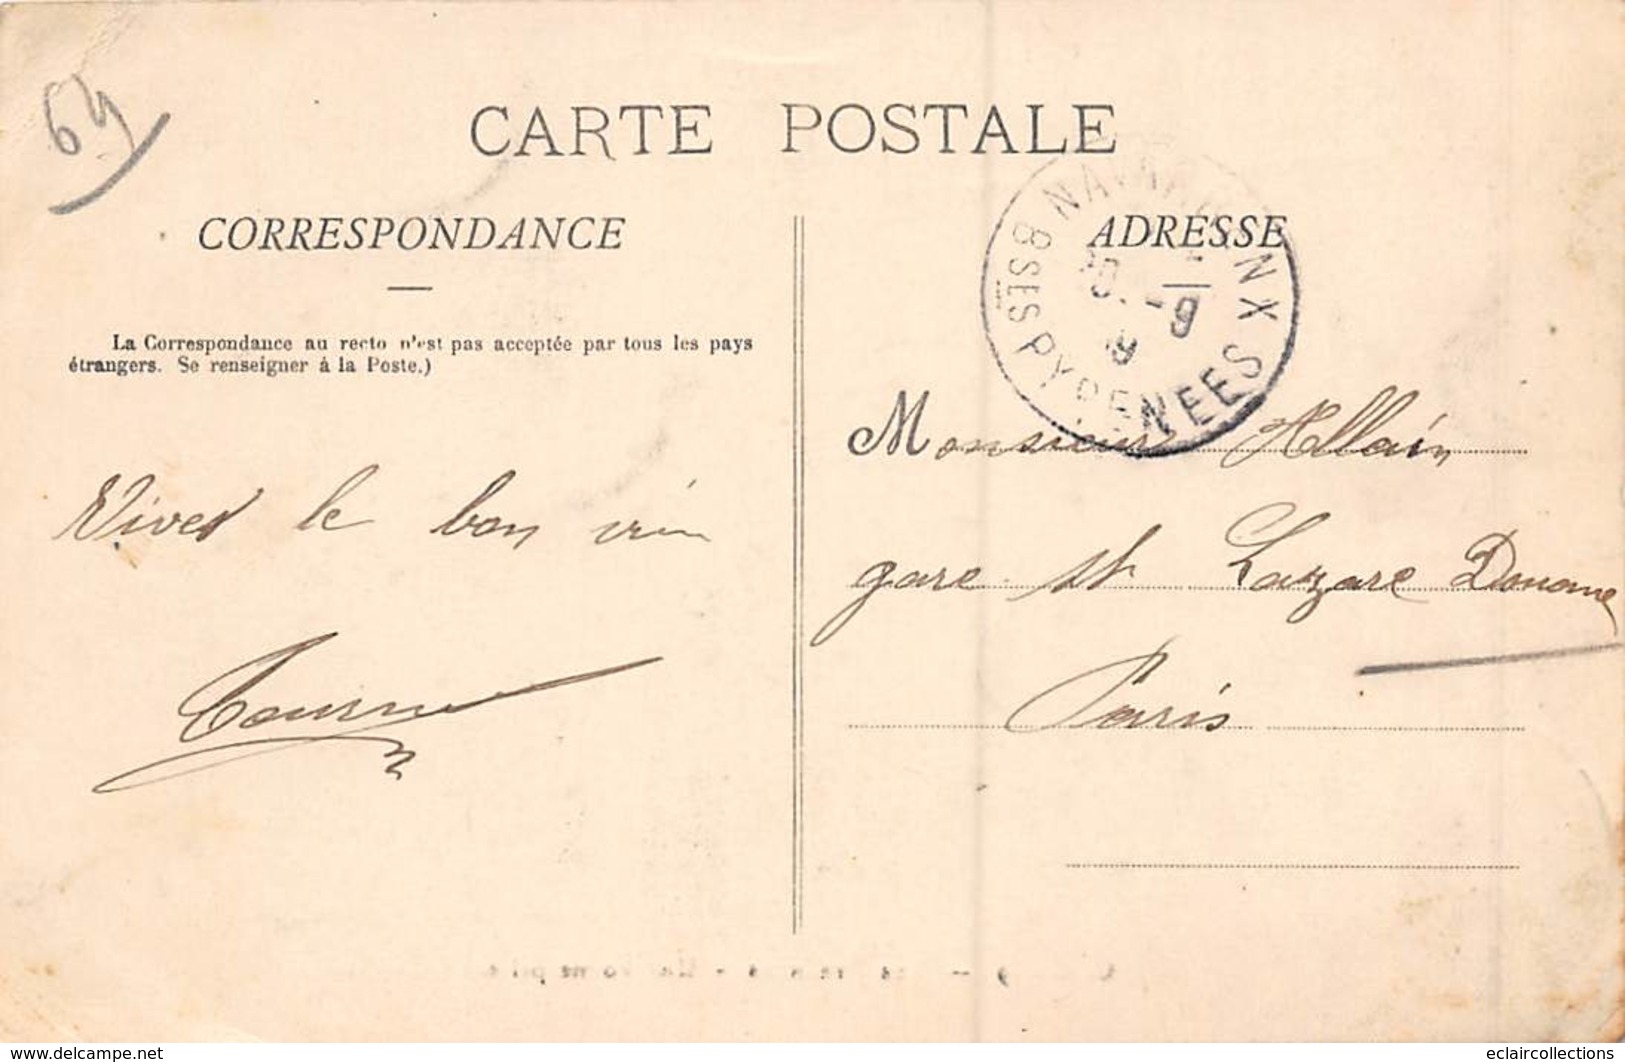 64
CARTE POSTALE
CORRESPONDANCE
ADRESSE
La Correspondance au recto n'est pas acceptée par tous les pays
étrangers. Se renseigner à la Poste.)
BSES PYRENEES
Monsieur Allain
Vives le bon vin
gare St Lazare Douane
Paris
www.delcampe.net
eclaircollections